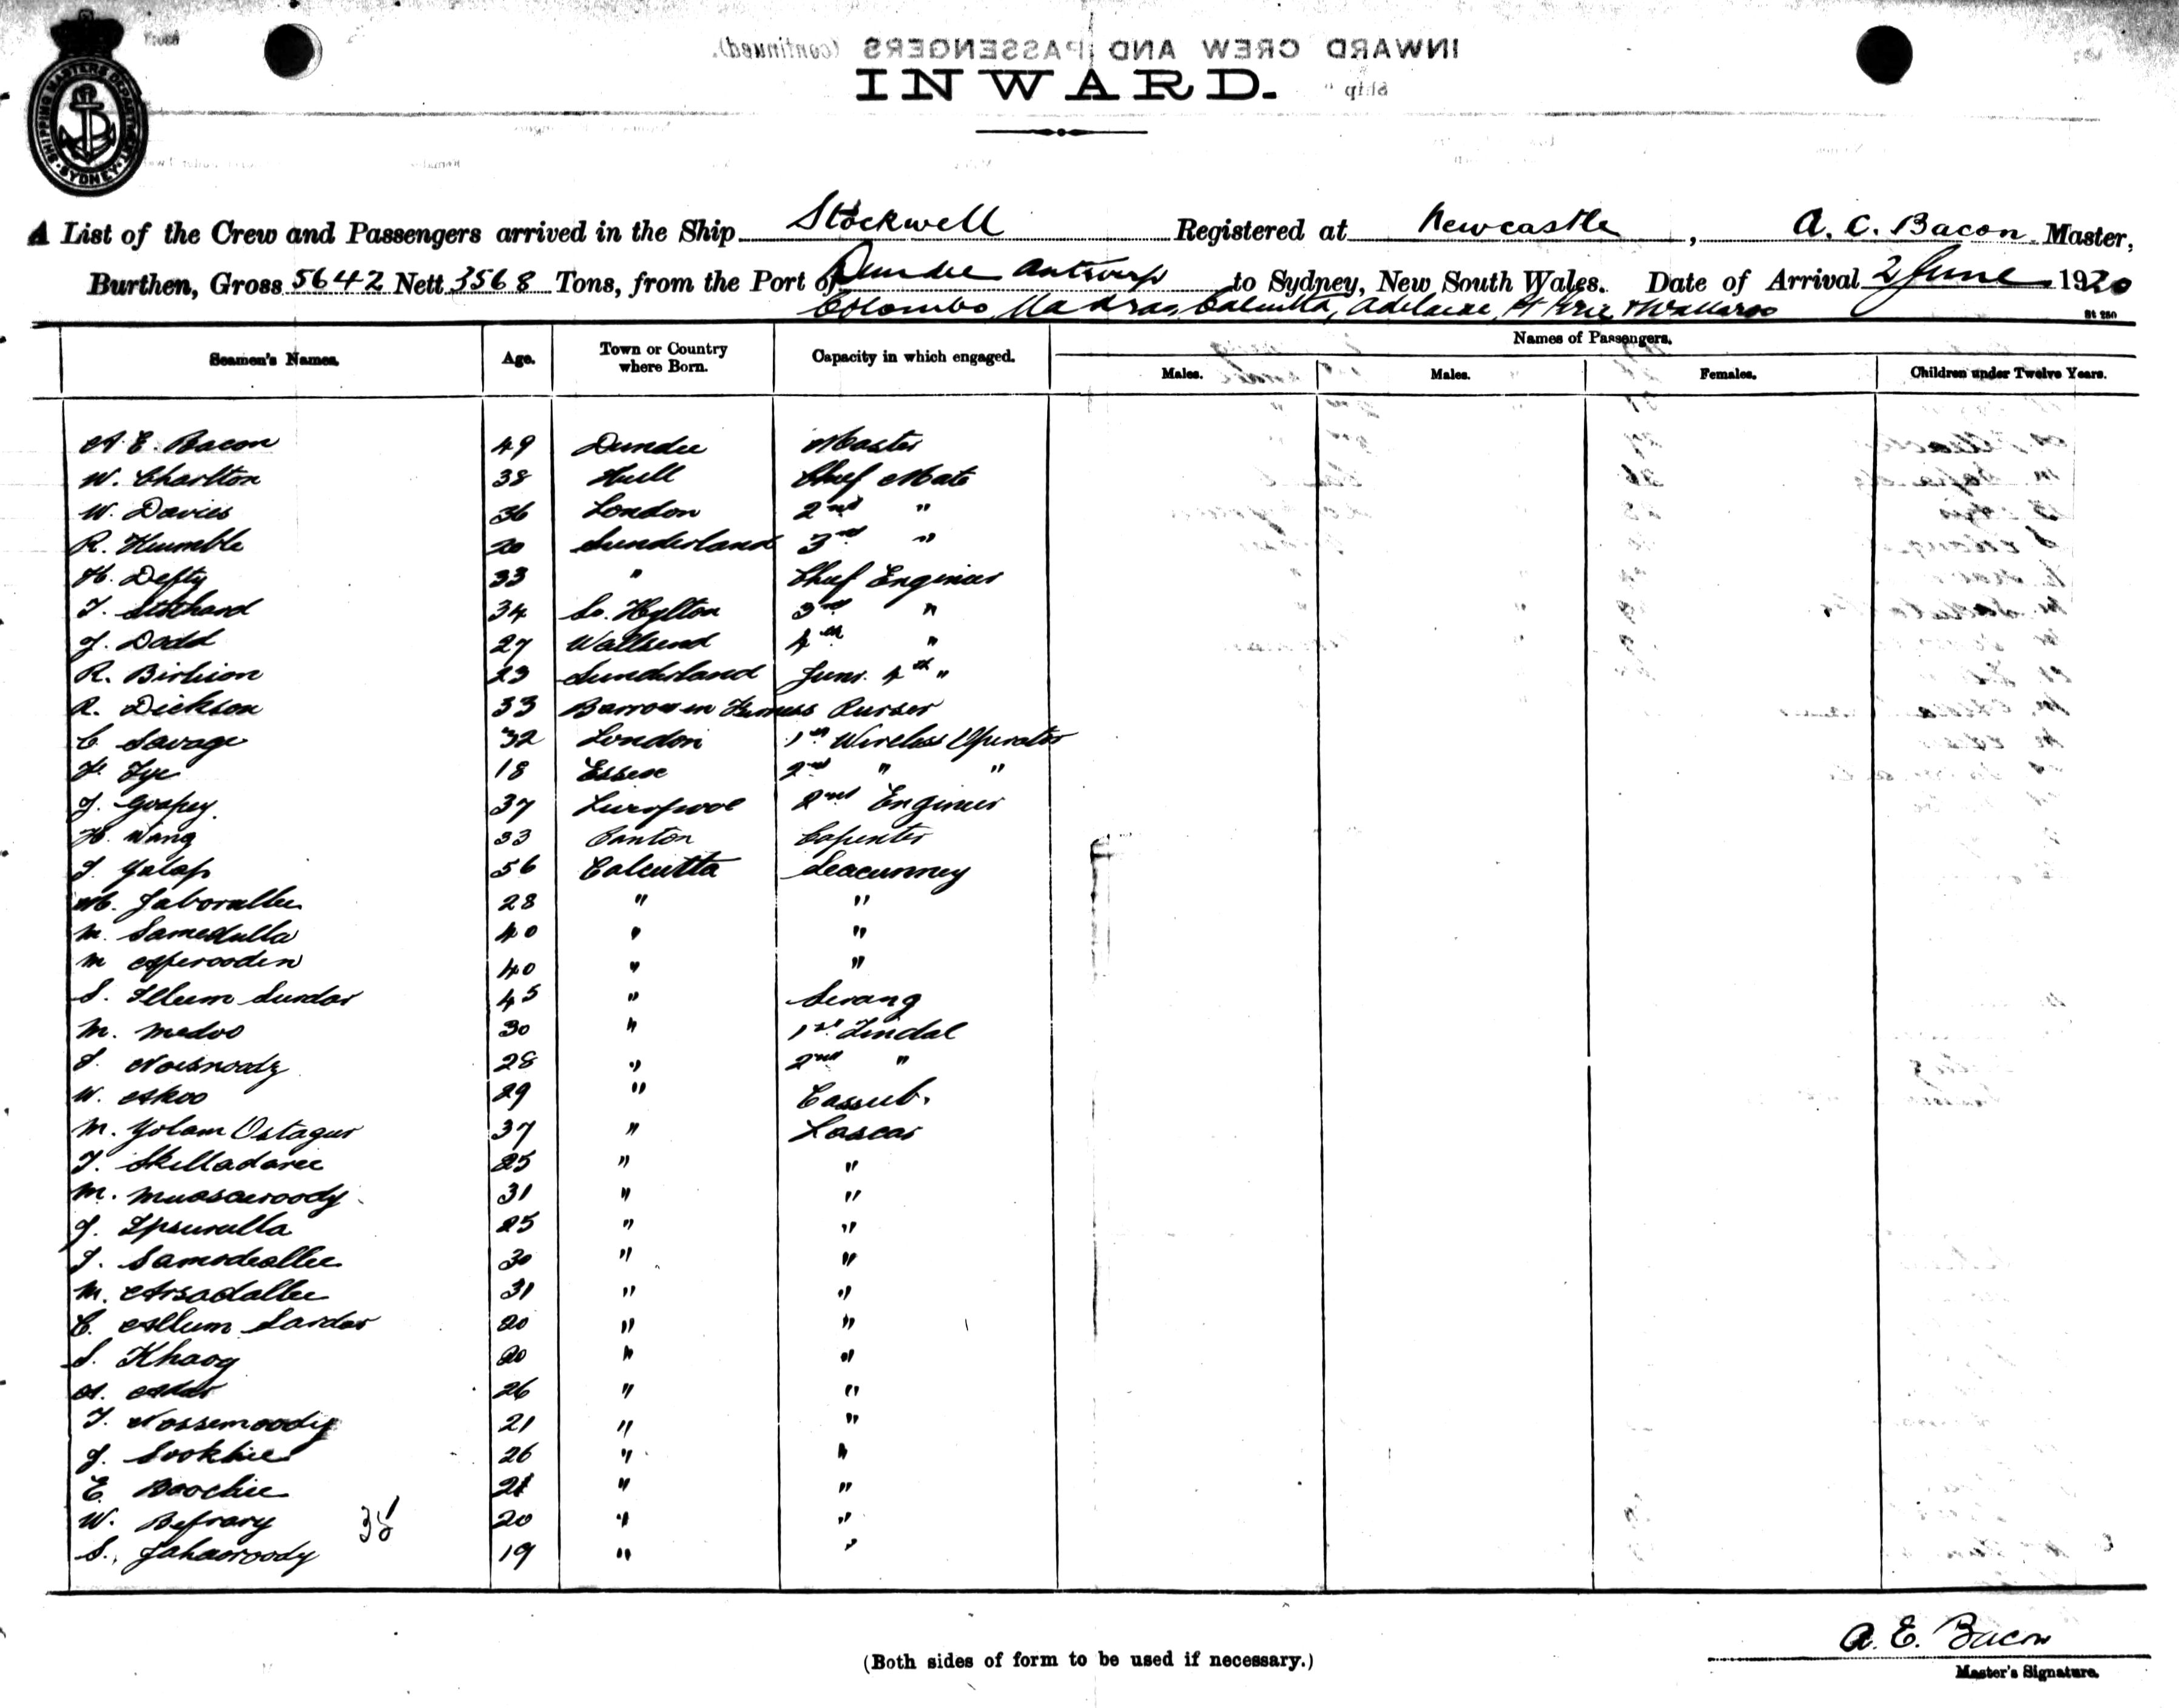 SHIPPING MASTERS DEPARTMENT
SYDNEY
INWARD CREW AND PASSENGERS (continued).
INWARD.
Ship "
A List of the Crew and Passengers arrived in the Ship Stockwell Registered at Newcastle, A. C. Bacon Master,
Burthen, Gross 5642 Nett 3568 Tons, from the Port of Dundee Antwerp to Sydney, New South Wales. Date of Arrival 2 June 1920
Colombo, Madras, Calcutta, Adelaide, Pt Pirie & Wallaroo
St 280
Seamen's Names. Age. Town or Country where Born. Capacity in which engaged. Names of Passengers.
Males. Males. Females. Children under Twelve Years.
A E. Bacon 49 Dundee Master
W. Charlton 38 Hull Chief Mate
W. Davies 36 London 2nd "
R. Humble 20 Sunderland 3rd "
H. Defty 33 " Chief Engineer
T. Stothard 34 So. Hylton 3rd "
J. Dodd 27 Wallsend 4th "
R. 23 Sunderland Junr. 4th "
R. Dickson 33 Barrow in Furness Purser
C. Savage 32 London 1st Wireless Operator
F. Tye 18 Essex 2nd " "
J. 37 Liverpool 2nd Engineer
H. Wang 33 Canton Capenter
S. Golap 56 Calcutta Seacunney
M. Jaborallee 28 " "
M. Samedulla 40 " "
M 40 " "
S. Illum Surdar 45 " Serang
M. Medoo 30 " 1st Tindal
S. 28 " 2nd "
W. Akoo 29 " Cassub.
M. Golam Ostagur 37 " Lascar
T. Skelladaree 25 " "
M. 31 " "
J. 25 " "
S. Samodeallee 30 " "
M. Arsadallee 31 " "
C. Allum Sardar 20 " "
S. Khaog 20 " "
A. 26 " "
T. Nossemoody 21 " "
J. 26 " "
E. Boochie 21 " "
W. Befrary 35 20 " "
S. Jahaoroody 19 " "
A. E. Bacon
(Both sides of form to be used if necessary.)
Master's Signature.